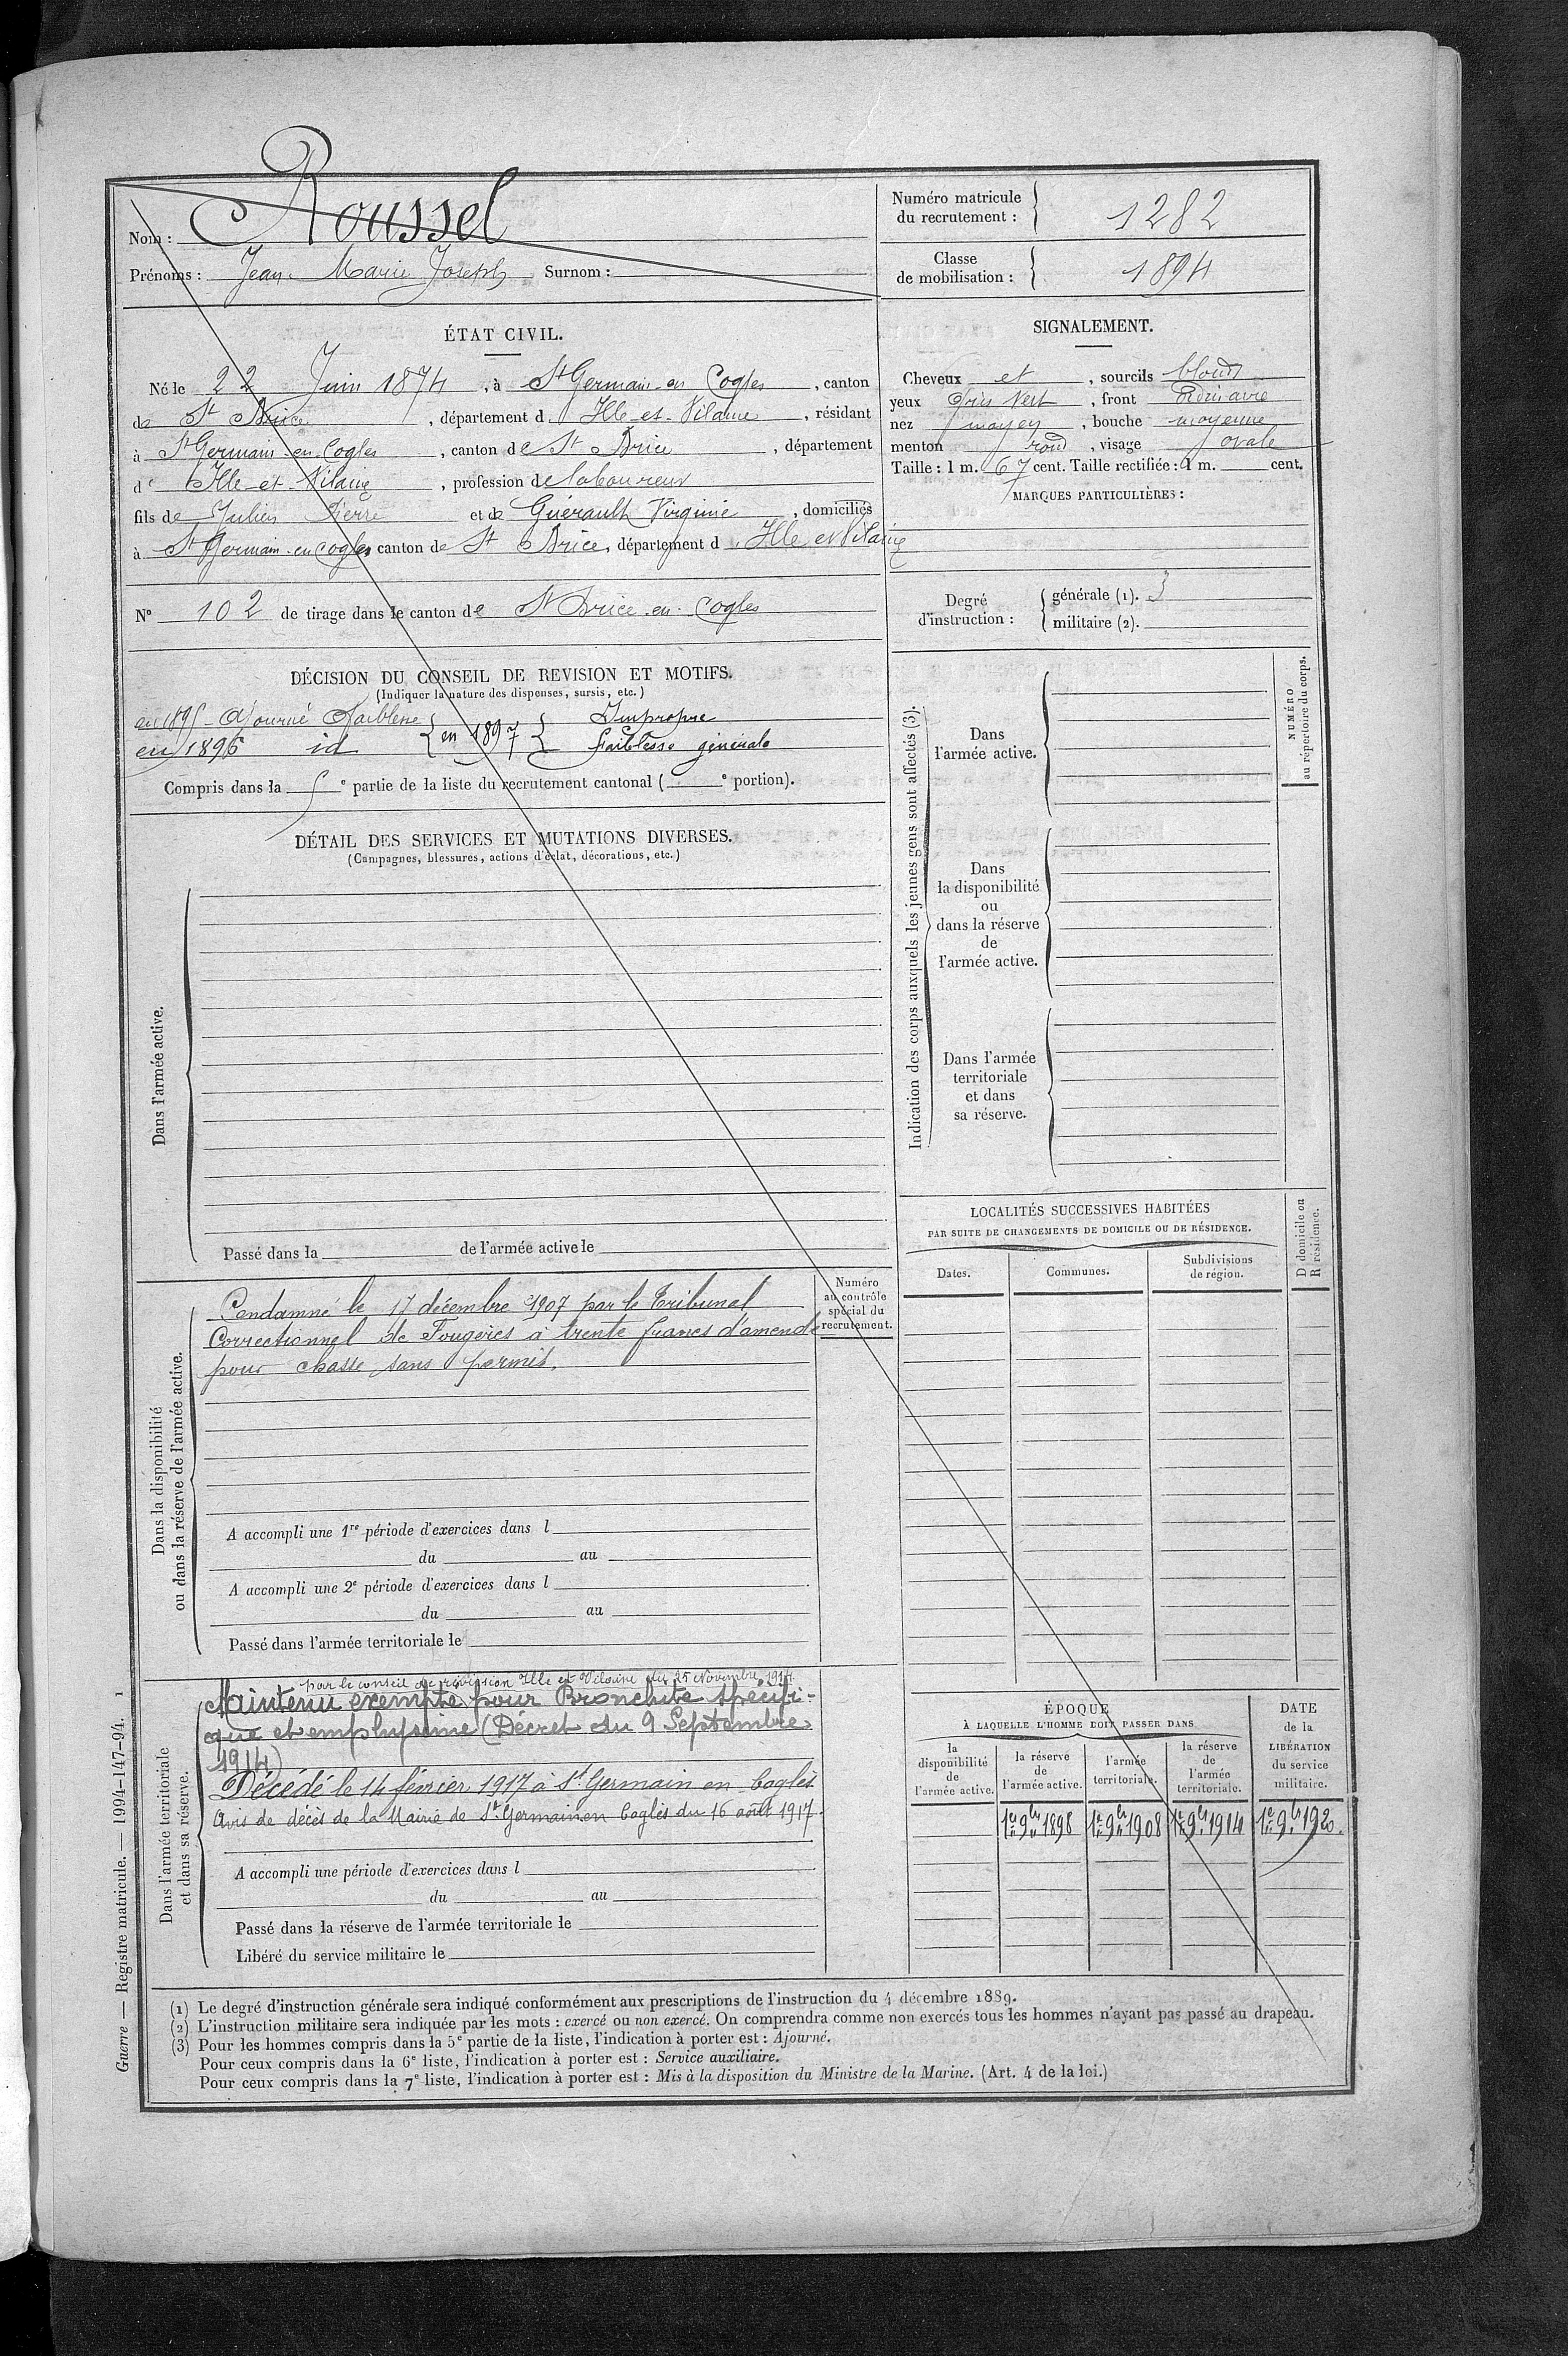 Nom : Roussel
Prénoms : Jean Marie Joseph Surnom :
Numéro matricule
du recrutement : 1282
Classe
de mobilisation : 1894
ÉTAT CIVIL.
Né le 22 Juin 1874, à St Germain-en Cogles, canton
de St Brice, département d Ille-et-Vilaine, résidant
à St Germain-en-Cogles, canton de St Brice, département
d Ille-et-Vilaine, profession de laboureur
fils de Julien Pierre et de Guérault Virginie, domiciliés
à St Germain-en Cogles canton de St Brice, département d Ille et Vilaine
N° 102 de tirage dans le canton de St Brice-en-Cogles
SIGNALEMENT.
Cheveux et, sourcils blonds
yeux Gris Vert, front Ordinaire
nez moyen, bouche moyenne
menton rond, visage ovale
Taille : 1 m. 67 cent. Taille rectifiée : 1 m. cent.
MARQUES PARTICULIÈRES :
Degré
d'instruction :
générale (1). 3
militaire (2).
DÉCISION DU CONSEIL DE REVISION ET MOTIFS.
(Indiquer la nature des dispenses, sursis, etc.)
en 1895 - Ajourné Faiblesse
en 1896 id
en 1897
Impropre
faiblesse générale
Compris dans la 5e partie de la liste du recrutement cantonal ( e portion).
DÉTAIL DES SERVICES ET MUTATIONS DIVERSES.
(Campagnes, blessures, actions d'éclat, décorations, etc.)
Dans l'armée active.
Passé dans la de l'armée active le
Indication des corps auxquels les jeunes gens sont affectés (3).
Dans
l'armée active.
Dans
la disponibilité
ou
dans la réserve
de
l'armée active.
Dans l'armée
territoriale
et dans
sa réserve.
NUMÉRO
au répertoire du corps.
LOCALITÉS SUCCESSIVES HABITÉES
PAR SUITE DE CHANGEMENTS DE DOMICILE OU DE RÉSIDENCE.
Dates.
Communes.
Subdivisions
de région.
D domicile ou
R résidence.
Dans la disponibilité
ou dans la réserve de l'armée active.
Numéro
au contrôle
spécial du
recrutement.
Condamné le 17 décembre 1907 par le Tribunal
Correctionnel de Fougères à trente francs d'amende
pour chasse sans permis.
A accompli une 1re période d'exercices dans l
du au
A accompli une 2e période d'exercices dans l
du au
Passé dans l'armée territoriale le
Dans l'armée territoriale
et dans sa réserve.
par le conseil de révision Ille et Vilaine du 25 Novembre 1914.
Maintenu exempté pour Bronchite spécifi-
que et emphysème (Décret du 9 Septembre
1914)
Décédé le 14 février 1917 à St Germain en Coglès
Avis de décès de la Mairie de St Germain en Coglès du 16 août 1917.
A accompli une période d'exercices dans l
du au
Passé dans la réserve de l'armée territoriale le
Libéré du service militaire le
ÉPOQUE
À LAQUELLE L'HOMME DOIT PASSER DANS
la
disponibilité
de
l'armée active.
la réserve
de
l'armée active.
l'armée
territoriale.
la réserve
de
l'armée
territoriale.
DATE
de la
LIBÉRATION
du service
militaire.
1er 9bre 1898
1er 9bre 1908
1er 9bre 1914
1er 9bre 1920.
(1) Le degré d'instruction générale sera indiqué conformément aux prescriptions de l'instruction du 4 décembre 1889.
(2) L'instruction militaire sera indiquée par les mots : exercé ou non exercé. On comprendra comme non exercés tous les hommes n'ayant pas passé au drapeau.
(3) Pour les hommes compris dans la 5e partie de la liste, l'indication à porter est : Ajourné.
Pour ceux compris dans la 6e liste, l'indication à porter est : Service auxiliaire.
Pour ceux compris dans la 7e liste, l'indication à porter est : Mis à la disposition du Ministre de la Marine. (Art. 4 de la loi.)
Guerre — Registre matricule. — 1994-147-94. 1